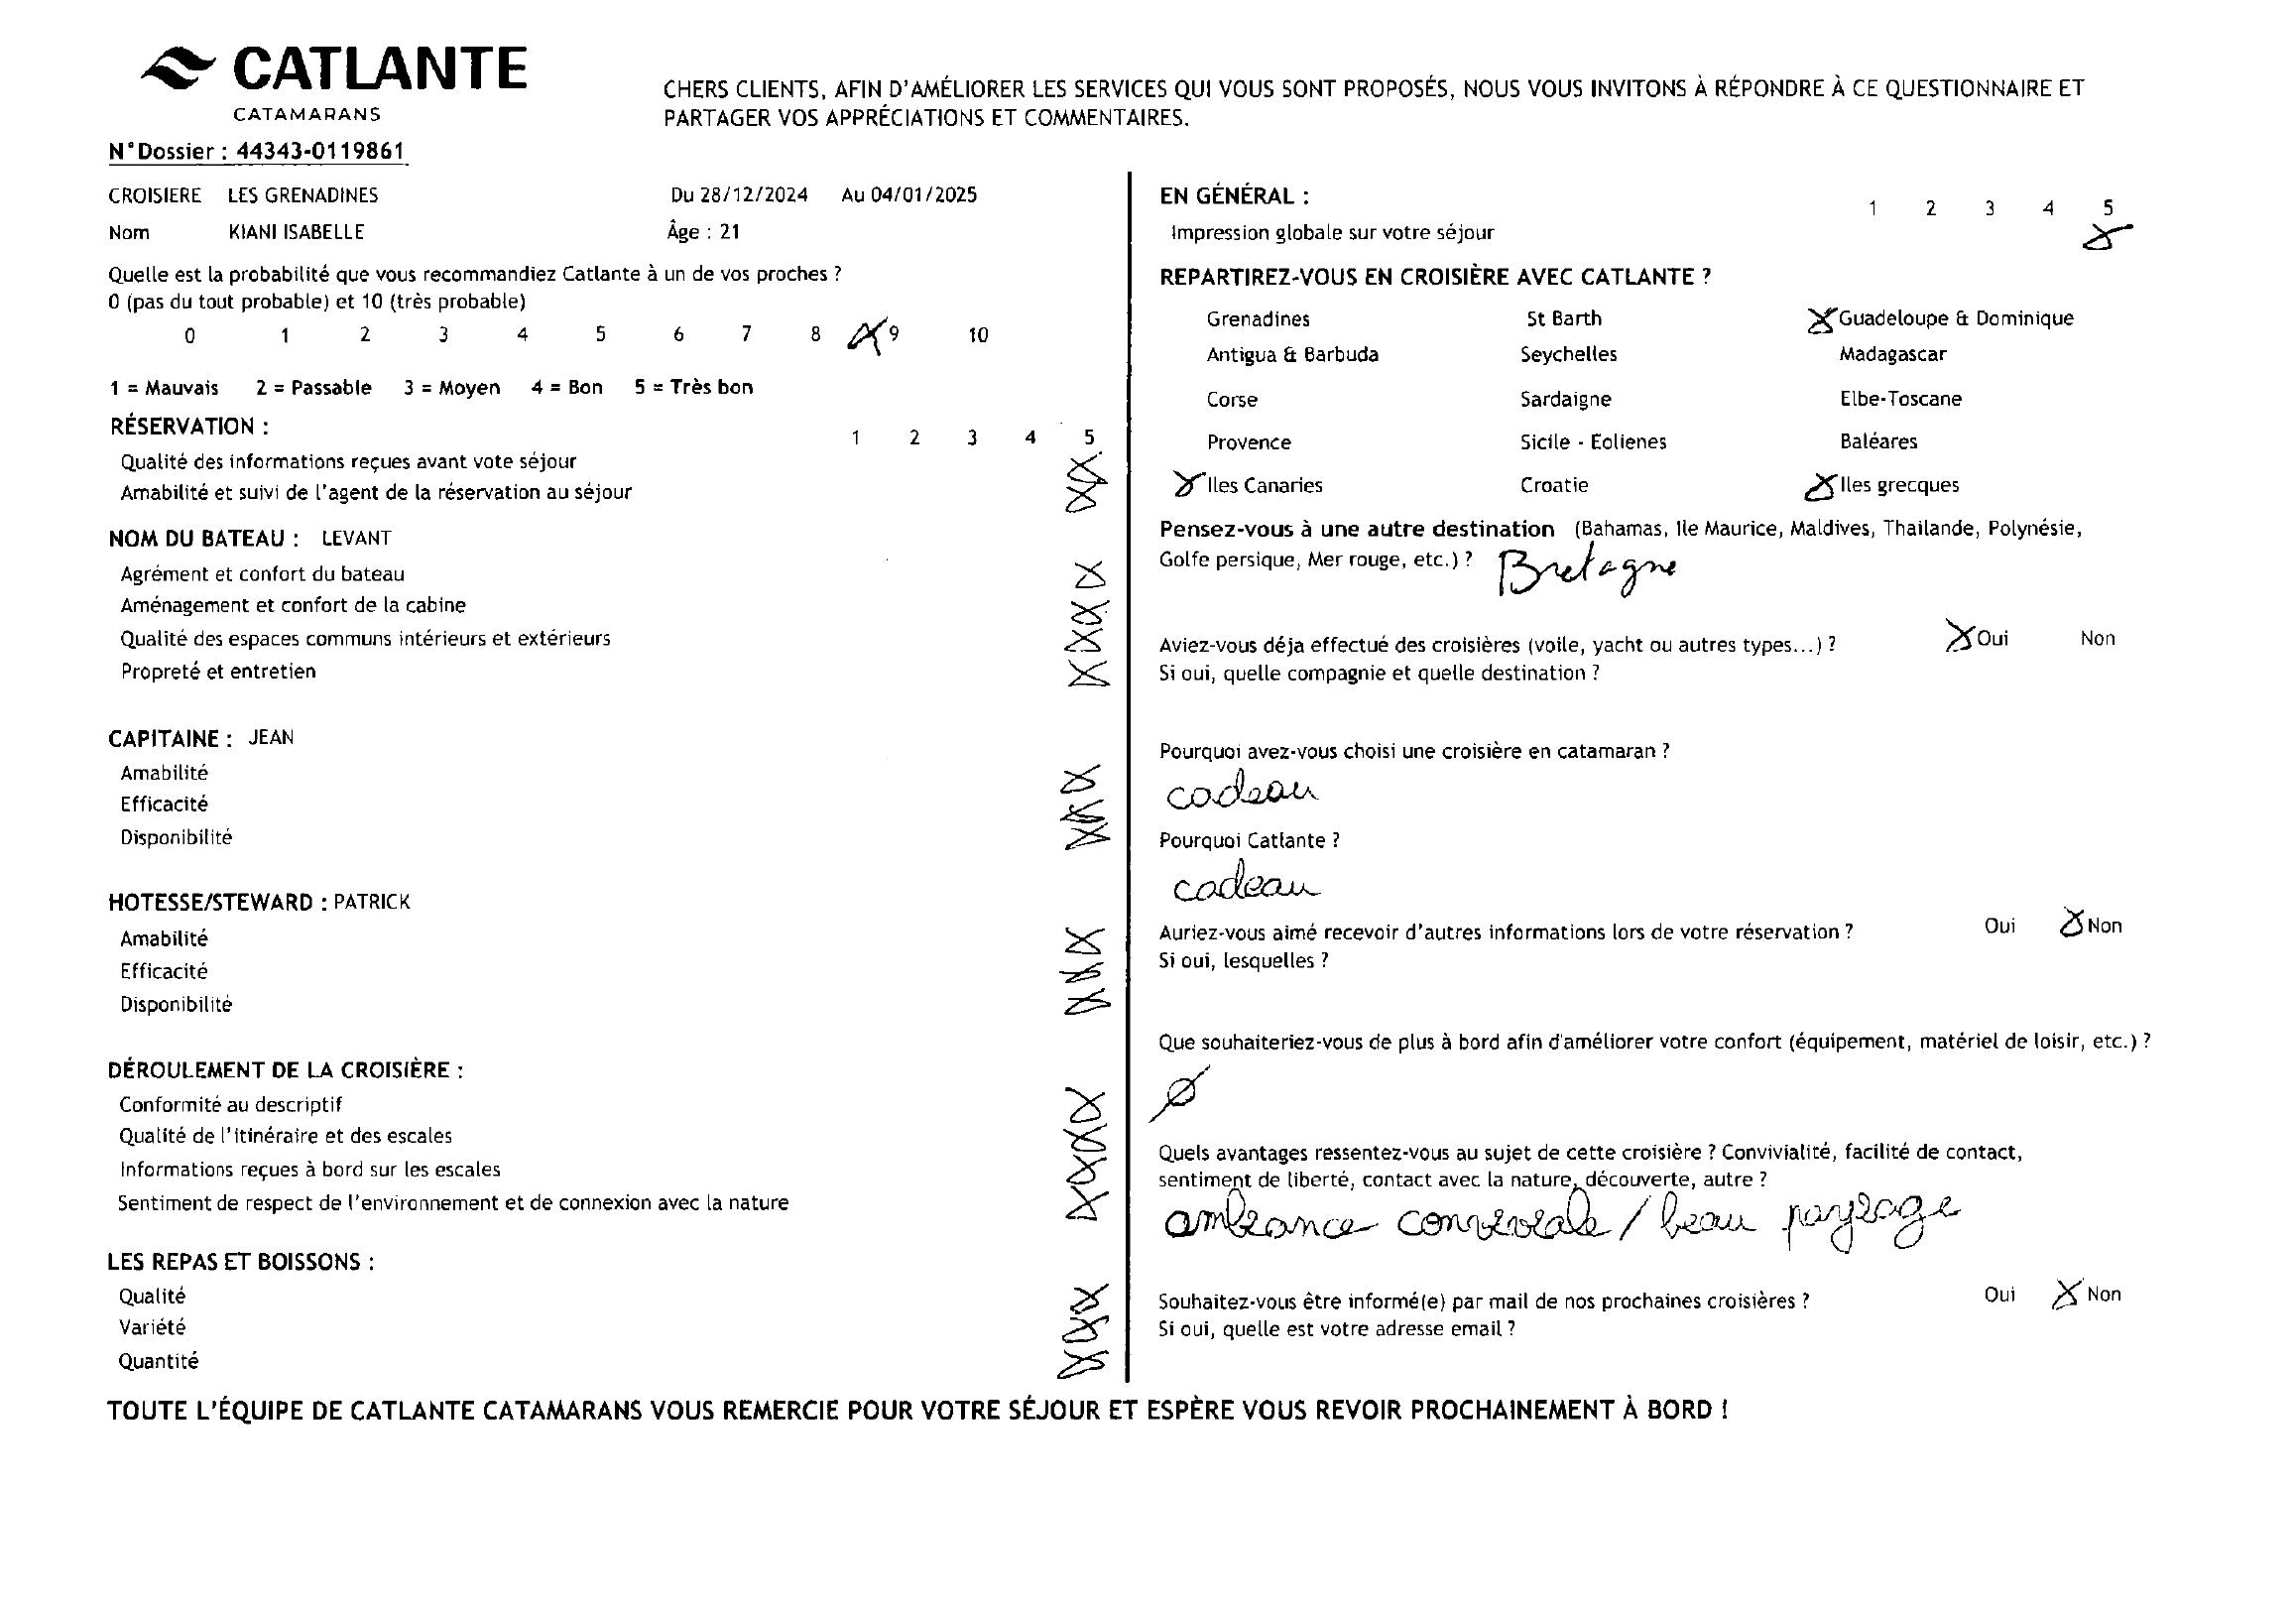 CATLANTE
CATAMARANS
CHERS CLIENTS, AFIN D'AMÉLIORER LES SERVICES QUI VOUS SONT PROPOSÉS, NOUS VOUS INVITONS À RÉPONDRE À CE QUESTIONNAIRE ET
PARTAGER VOS APPRÉCIATIONS ET COMMENTAIRES.
N°Dossier : 44343-0119861
CROISIERE LES GRENADINES Du 28/12/2024 Au 04/01/2025
Nom KIANI ISABELLE Âge : 21
Quelle est la probabilité que vous recommandiez Catlante à un de vos proches ?
0 (pas du tout probable) et 10 (très probable)
0 1 2 3 4 5 6 7 8 X 9 10
1 = Mauvais 2 = Passable 3 = Moyen 4 = Bon 5 = Très bon
RÉSERVATION :
1 2 3 4 5
Qualité des informations reçues avant vote séjour X
Amabilité et suivi de l'agent de la réservation au séjour X
NOM DU BATEAU : LEVANT
Agrément et confort du bateau X
Aménagement et confort de la cabine X
Qualité des espaces communs intérieurs et extérieurs X
Propreté et entretien X
CAPITAINE : JEAN
Amabilité X
Efficacité X
Disponibilité X
HOTESSE/STEWARD : PATRICK
Amabilité X
Efficacité X
Disponibilité X
DÉROULEMENT DE LA CROISIÈRE :
Conformité au descriptif X
Qualité de l'itinéraire et des escales X
Informations reçues à bord sur les escales X
Sentiment de respect de l'environnement et de connexion avec la nature X
LES REPAS ET BOISSONS :
Qualité X
Variété X
Quantité X
EN GÉNÉRAL :
1 2 3 4 5
Impression globale sur votre séjour X
REPARTIREZ-VOUS EN CROISIÈRE AVEC CATLANTE ?
Grenadines St Barth X Guadeloupe & Dominique
Antigua & Barbuda Seychelles Madagascar
Corse Sardaigne Elbe-Toscane
Provence Sicile - Eolienes Baléares
X Iles Canaries Croatie X Iles grecques
Pensez-vous à une autre destination (Bahamas, Ile Maurice, Maldives, Thaïlande, Polynésie,
Golfe persique, Mer rouge, etc.) ? Bretagne
Aviez-vous déja effectué des croisières (voile, yacht ou autres types...) ? X Oui Non
Si oui, quelle compagnie et quelle destination ?
Pourquoi avez-vous choisi une croisière en catamaran ?
cadeau
Pourquoi Catlante ?
cadeau
Auriez-vous aimé recevoir d'autres informations lors de votre réservation ? Oui X Non
Si oui, lesquelles ?
Que souhaiteriez-vous de plus à bord afin d'améliorer votre confort (équipement, matériel de loisir, etc.) ?
Ø
Quels avantages ressentez-vous au sujet de cette croisière ? Convivialité, facilité de contact,
sentiment de liberté, contact avec la nature, découverte, autre ?
ambiance conviviale / beau paysage
Souhaitez-vous être informé(e) par mail de nos prochaines croisières ? Oui X Non
Si oui, quelle est votre adresse email ?
TOUTE L'ÉQUIPE DE CATLANTE CATAMARANS VOUS REMERCIE POUR VOTRE SÉJOUR ET ESPÈRE VOUS REVOIR PROCHAINEMENT À BORD !